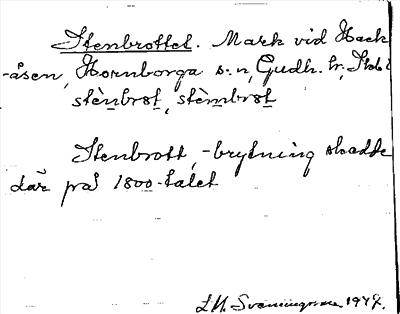 Stenbrottet. Mark vid Hack-
-åsen, Hornborga s:n, Gudh. hr,
stènbrøt, stèmbrøt
Stenbrott, -brytning skedde
där på 1800-talet
1947.